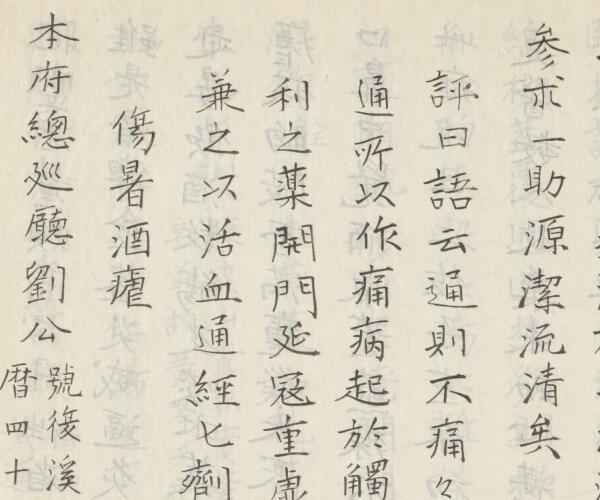 參求一助源潔流清矣
評曰語云通則不痛々
通所以作痛病起於觸
利之藥開門延寇重虛
兼之以活血通經七劑
傷暑酒瘧
本府總巡廳劉公
號後溪
曆四十